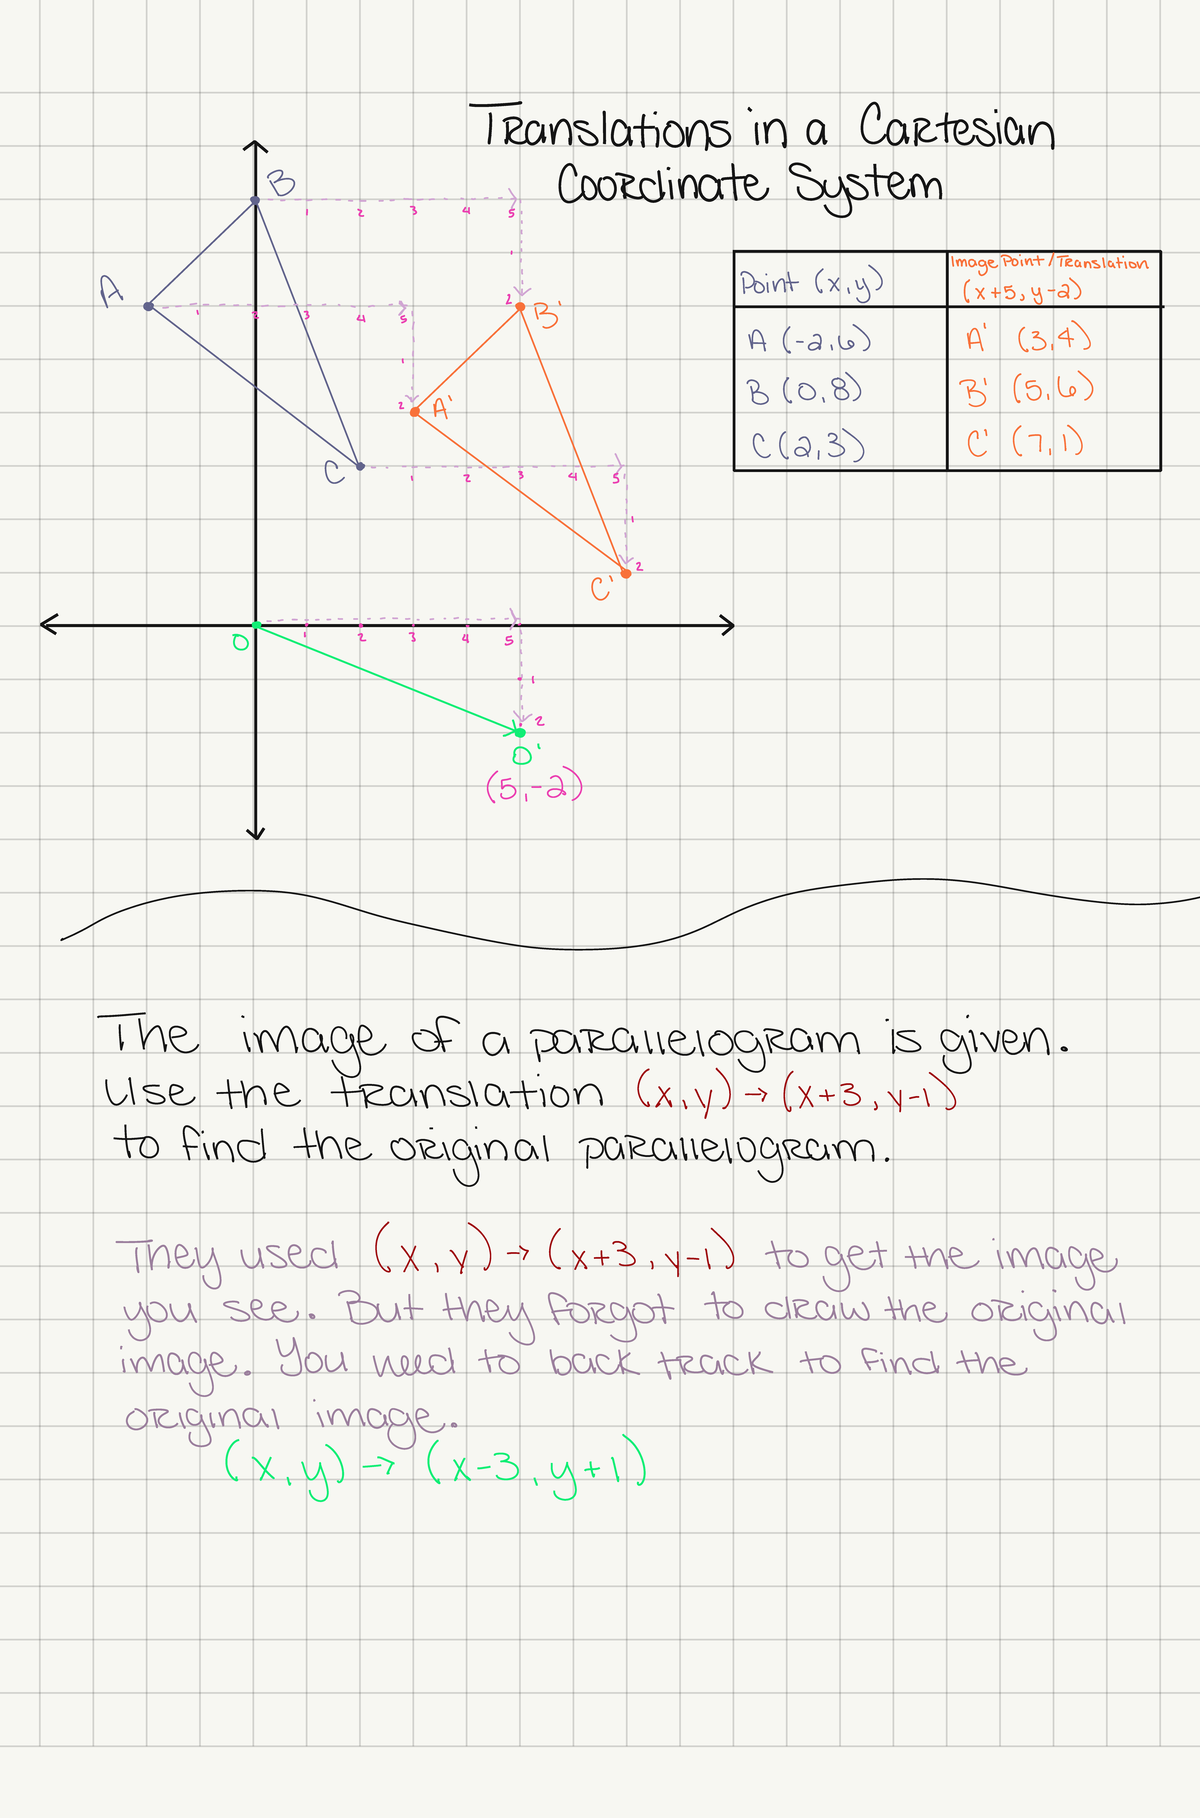 Translations in a Cartesian
Coordinate System
B
1 2 3 4 5
1
2
B'
A
1 2 3 4 5
1
2
A'
C
1 2 3 4 5
1
2
C'
O
1 2 3 4 5
1
2
O'
(5,-2)
Point (x,y)
Image Point/Translation
(x+5, y-2)
A (-2,6) A' (3,4)
B (0,8) B' (5,6)
C (2,3) C' (7,1)
The image of a parallelogram is given.
Use the translation (x,y) → (x+3, y-1)
to find the original parallelogram.
They used (x,y) → (x+3, y-1) to get the image
you see. But they forgot to draw the original
image. You need to back track to find the
original image.
(x,y) → (x-3, y+1)